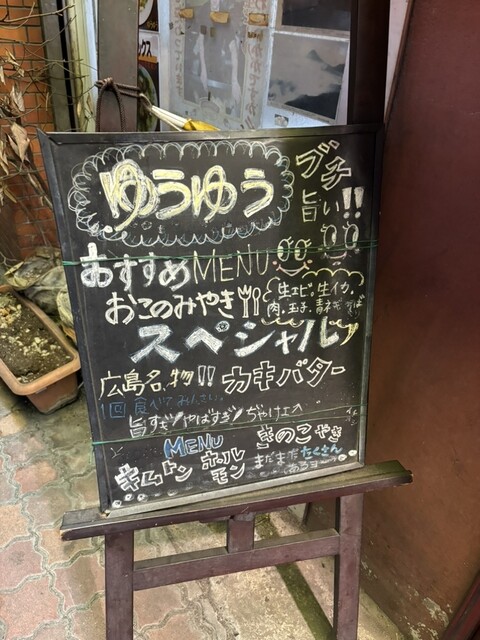 ゆうゆう
ブチ
旨い!!
おすすめMENU
おこのみやき
生エビ。生イカ。
肉。玉子。青ネギ。そば
スペシャル
広島名物!! カキバター
1回食べてみんさい。
旨すぎヤバすぎ
MENU
キムトン ホルモン
きのこやき
まだまだたくさん
あるヨ